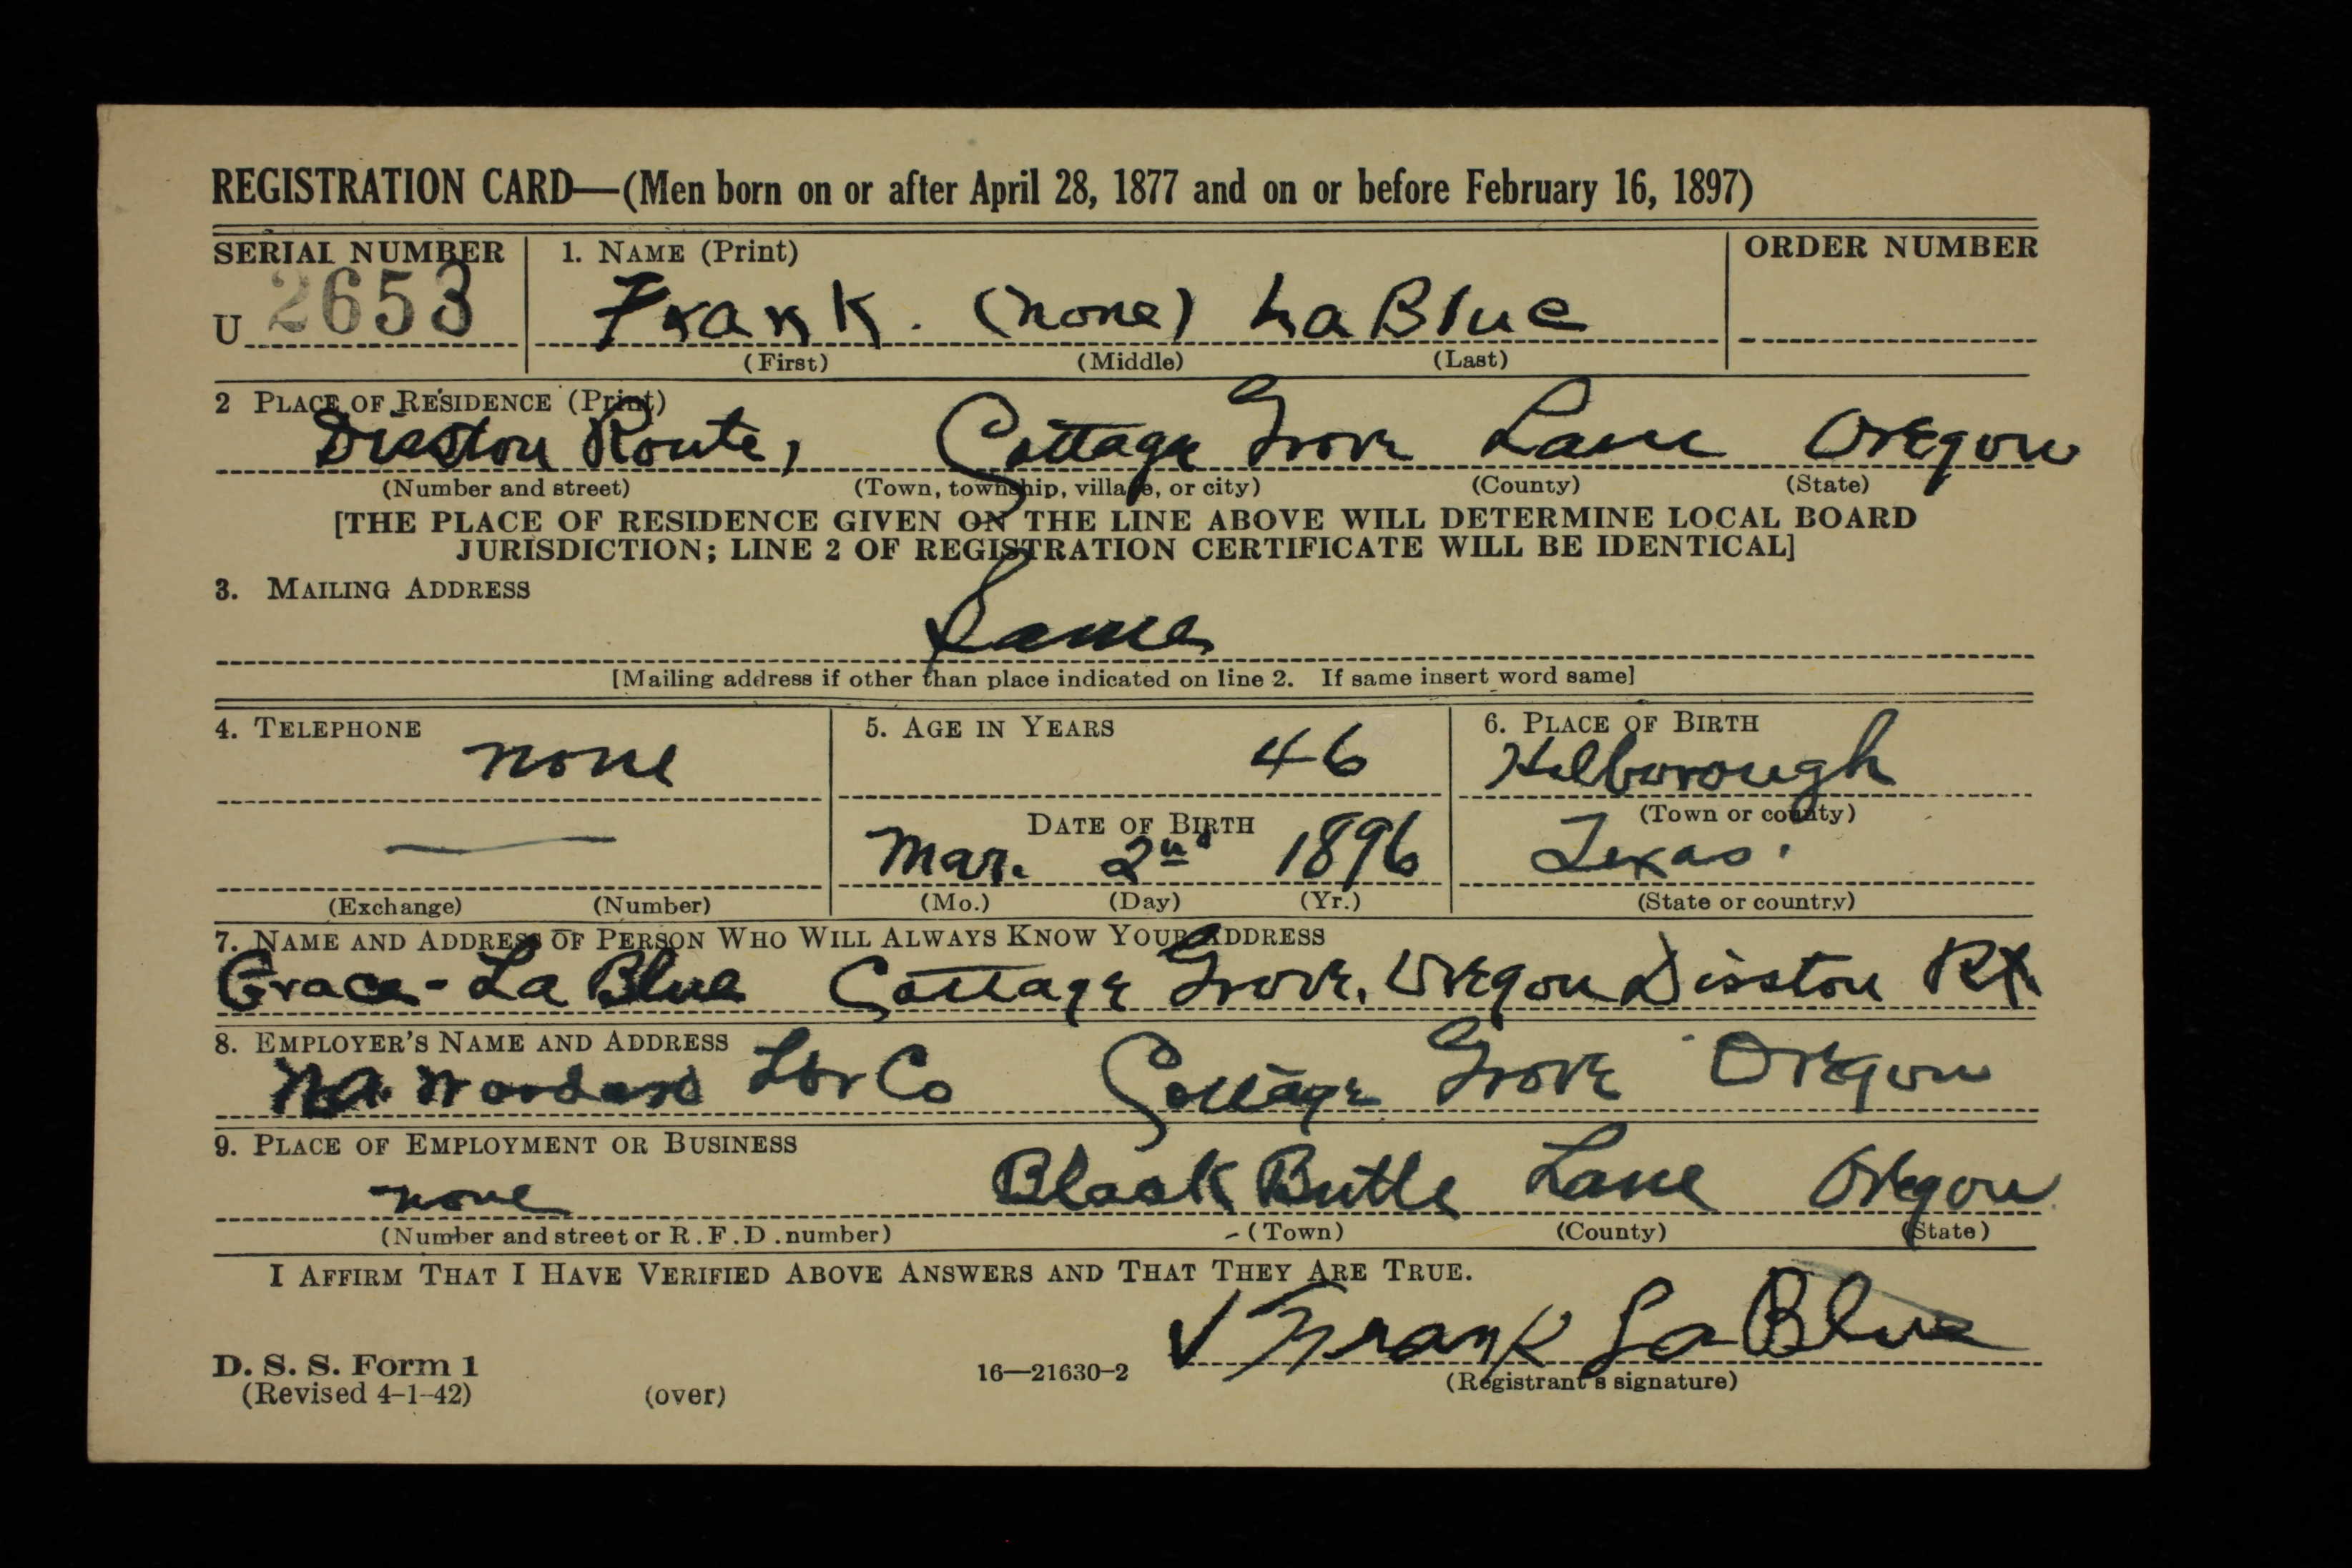 REGISTRATION CARD—(Men born on or after April 28, 1877 and on or before February 16, 1897)
SERIAL NUMBER 1. NAME (Print) ORDER NUMBER
U 2653 Frank. (none) LaBlue
(First) (Middle) (Last)
2 PLACE OF RESIDENCE (Print)
Disston Route, Cottage Grove Lane Oregon
(Number and street) (Town, township, village, or city) (County) (State)
[THE PLACE OF RESIDENCE GIVEN ON THE LINE ABOVE WILL DETERMINE LOCAL BOARD
JURISDICTION; LINE 2 OF REGISTRATION CERTIFICATE WILL BE IDENTICAL]
3. MAILING ADDRESS
Same
[Mailing address if other than place indicated on line 2. If same insert word same]
4. TELEPHONE 5. AGE IN YEARS 6. PLACE OF BIRTH
none 46 Hilborough
(Town or county)
DATE OF BIRTH
Mar. 2nd 1896 Texas.
(Exchange) (Number) (Mo.) (Day) (Yr.) (State or country)
7. NAME AND ADDRESS OF PERSON WHO WILL ALWAYS KNOW YOUR ADDRESS
Grace - La Blue Cottage Grove, Oregon Disston Rt.
8. EMPLOYER'S NAME AND ADDRESS
Lbr Co Cottage Grove Oregon
9. PLACE OF EMPLOYMENT OR BUSINESS
none Black Butte Lane Oregon
(Number and street or R.F.D. number) (Town) (County) (State)
I AFFIRM THAT I HAVE VERIFIED ABOVE ANSWERS AND THAT THEY ARE TRUE.
✓ Frank La Blue
D. S. S. Form 1 16—21630-2 (Registrant's signature)
(Revised 4-1-42) (over)